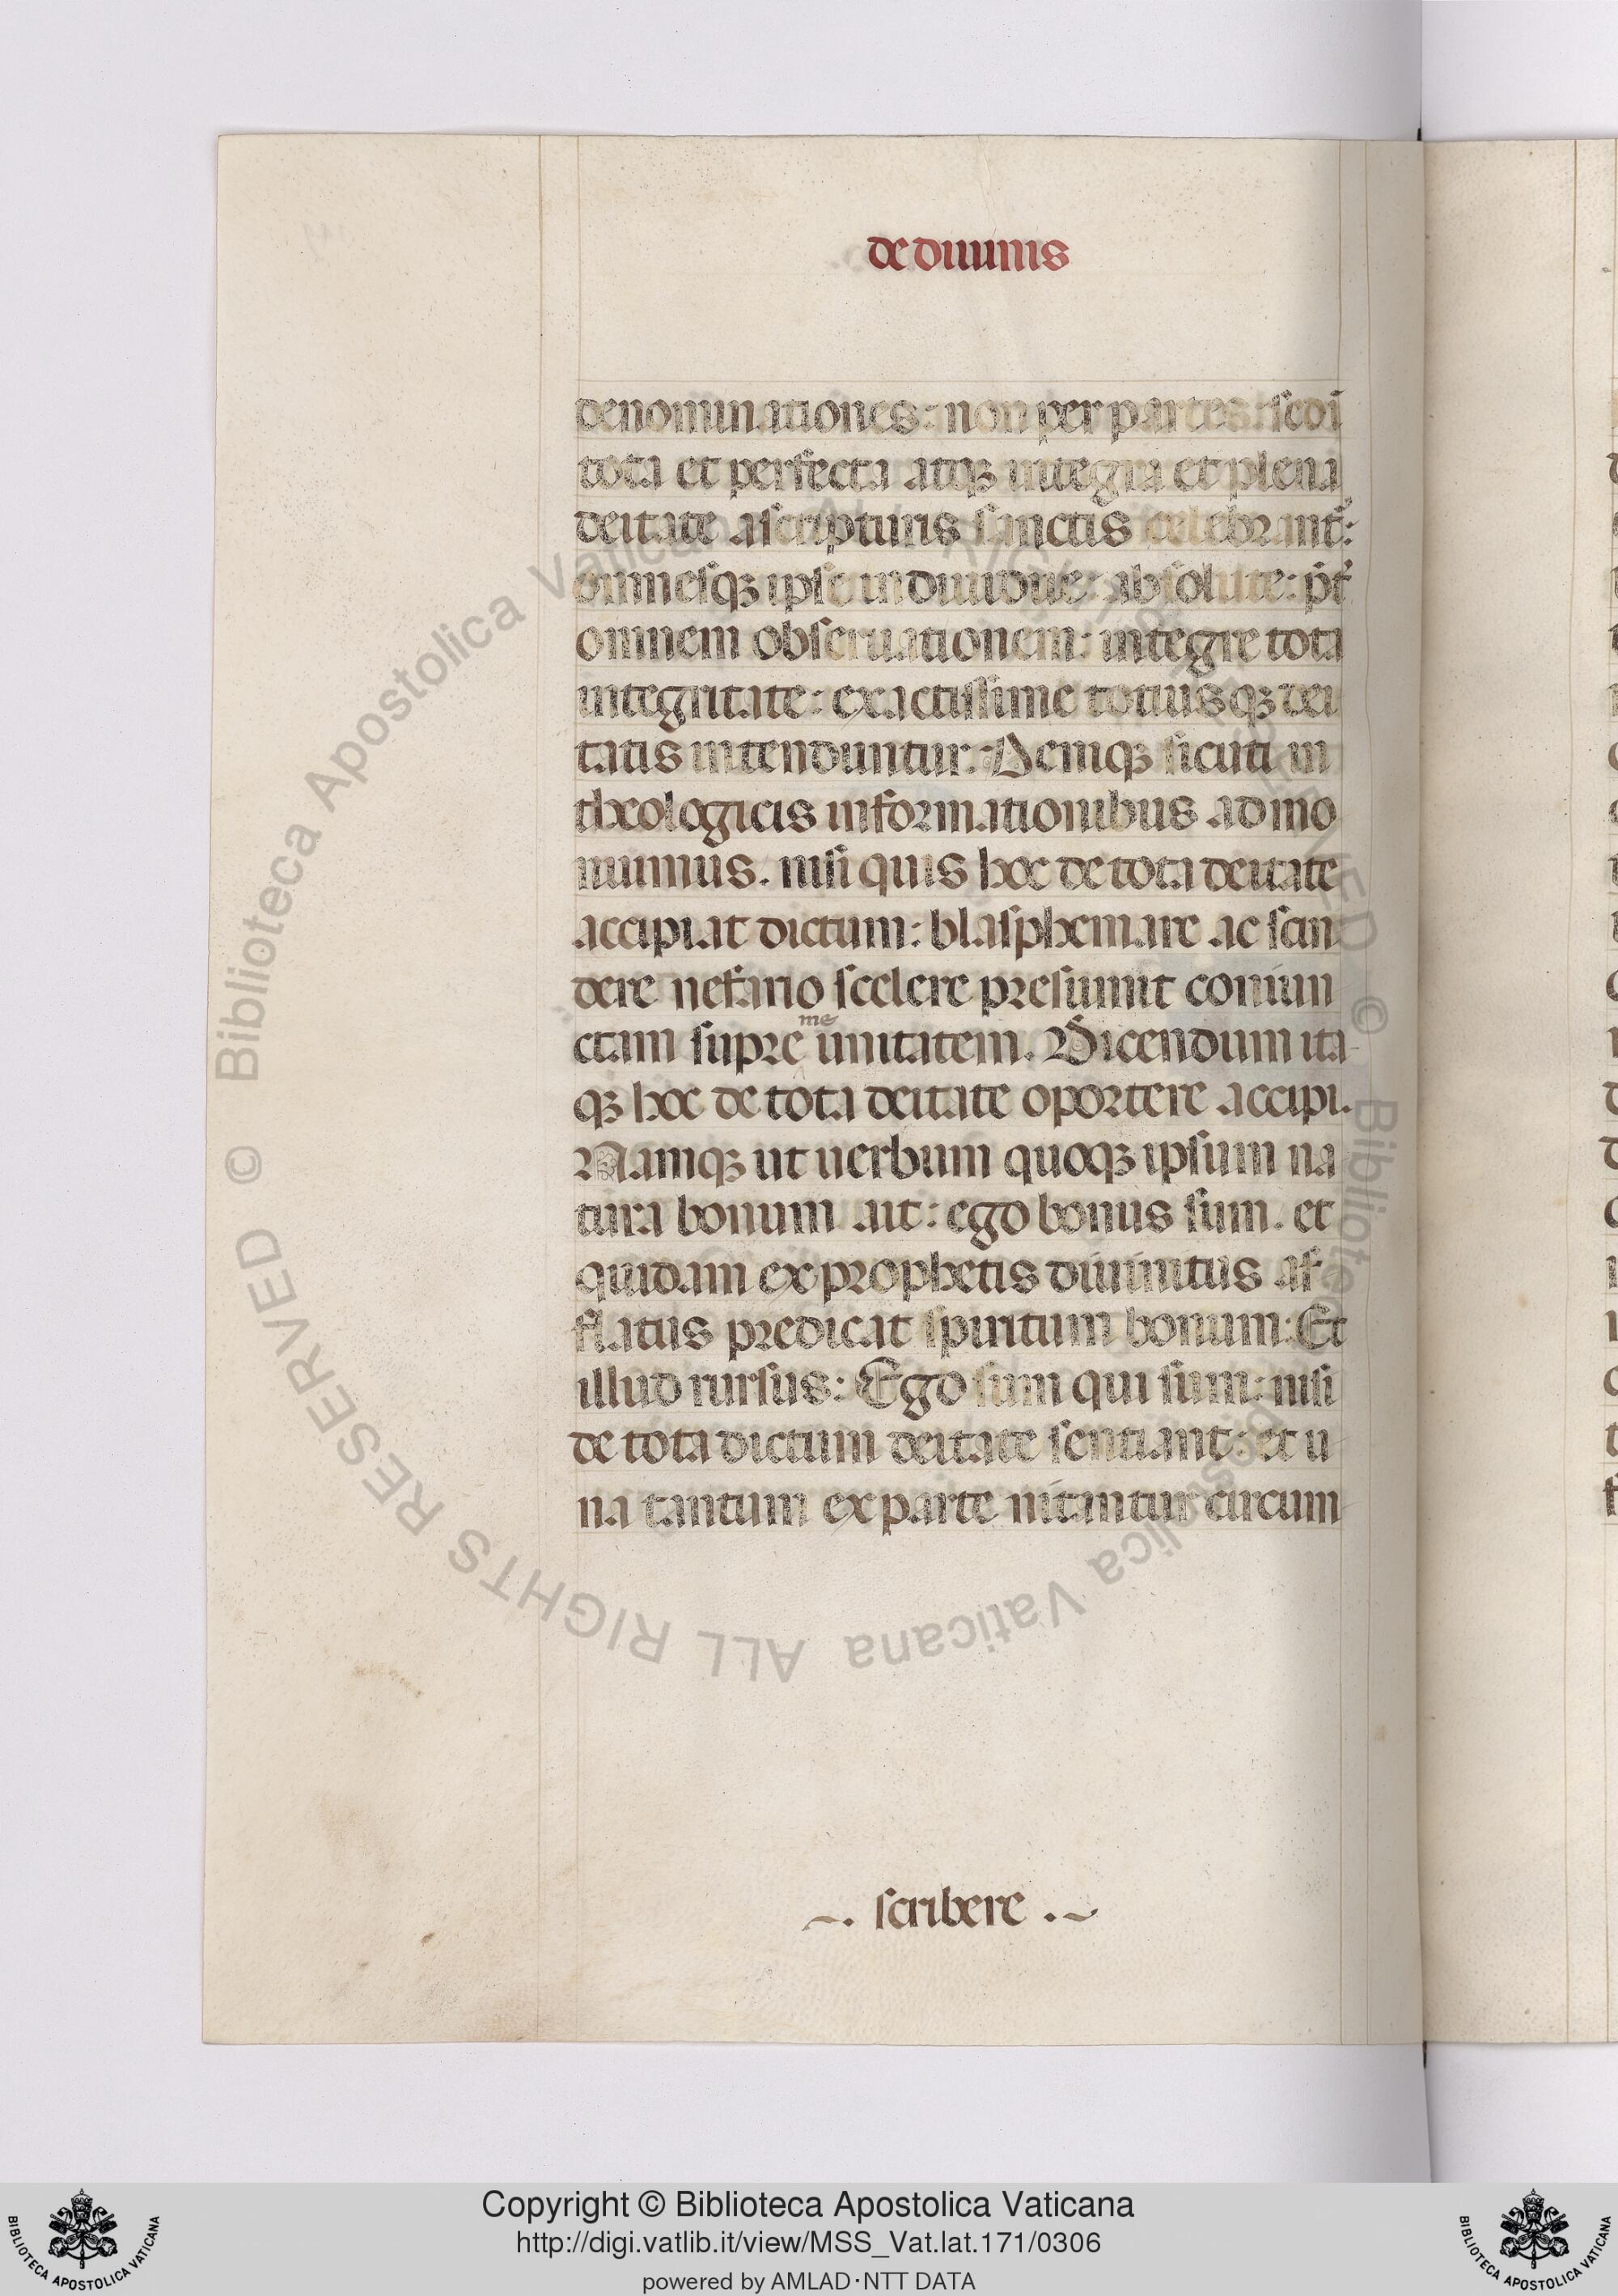 de diuinis
denominationes: non per partes: sed ī
tota et perfecta atqꝫ integra et plena
deitate a scripturis sanctis celebrant᷑:
omnesqꝫ ipse indiuidue: absolute: p̄t᷑
omnem obseruationem: integre tota
integritate: exactissime totiusqꝫ dei
tatis intenduntur. Deniqꝫ sicuti in
theologicis informationibus admo
nuimus. nisi quis hoc de tota deitate
accipiat dictum: blasphemare ac scin
dere nefario scelere presumit coniun
ctam supreme unitatem. Dicendum ita
qꝫ hoc de tota deitate oportere accipi.
Namqꝫ ut uerbum quoqꝫ ipsum na
tura bonum ait: ego bonus sum. et
quidam ex prophetis diuinitus af
flatus predicat spiritum bonum: Et
illud rursus: Ego sum qui sum: nisi
de tota dictum deitate sentiant: et u
na tantum ex parte nitantur circum
~. scribere .~
© Biblioteca Apostolica Vaticana ALL RIGHTS RESERVED © Biblioteca Apostolica Vaticana ALL RIGHTS RESERVED
Copyright © Biblioteca Apostolica Vaticana
http://digi.vatlib.it/view/MSS_Vat.lat.171/0306
powered by AMLAD·NTT DATA
BIBLIOTECA APOSTOLICA VATICANA
BIBLIOTECA APOSTOLICA VATICANA